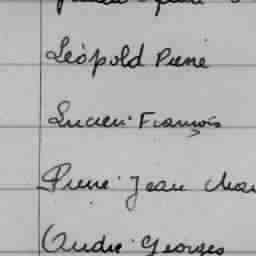 Léopold Pierre
Lucien François
Pierre Jean Char
André Georges